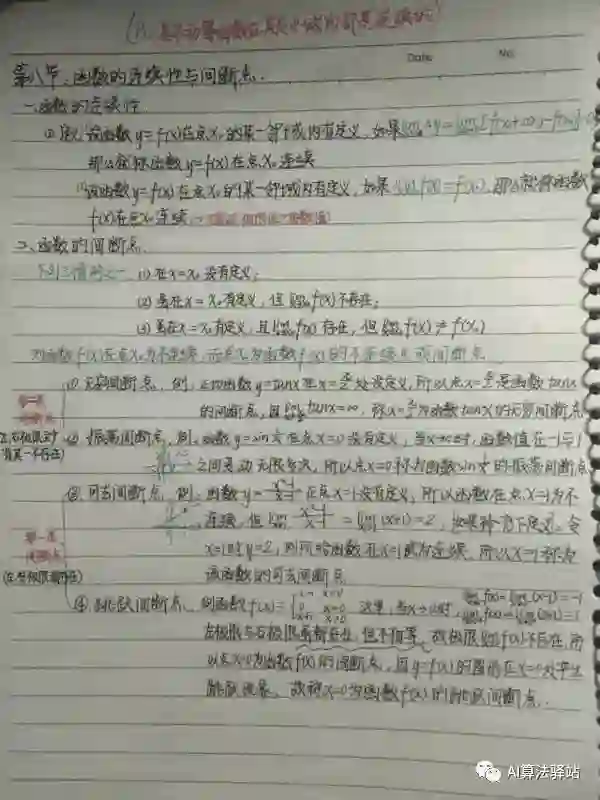 Date No.
第八节、函数的连续性与间断点.
一、函数的连续性
设函数y=f(x)在点x₀的某一邻域内有定义,如果
那么就称函数y=f(x)在点x₀连续
设函数y=f(x)在点x₀的某一邻域内有定义,如果lim f(x)=f(x₀),那么就称函数
f(x)在点x₀连续.
二、函数的间断点.
下列三情形之一 (1)在x=x₀没有定义;
(2)虽在x=x₀有定义,但lim f(x)不存在;
(3)虽在x=x₀有定义,且lim f(x)存在,但lim f(x)≠f(x₀)
则函数f(x)在点x₀为不连续,而点x₀为函数f(x)的不连续点或间断点
① 无穷间断点,例,正切函数y=tanx在x=π/2处没定义,所以点x=π/2是函数tanx
的间断点,且lim tanx=∞,称x=π/2为函数tanx的无穷间断点
第二类
间断点
(左右极限至少
有其一不存在)
② 振荡间断点,例,函数y=sin 1/x在点x=0没有定义,当x→0时,函数值在-1与1
之间变动无限多次,所以点x=0称为函数sin 1/x的振荡间断点
③ 可去间断点,例,函数y=x²-1/x-1在点x=1没有定义,所以函数在点x=1为不
连续,但lim x²-1/x-1=lim(x+1)=2,如果补充下定义,令
x=1时y=2,则所给函数在x=1成为连续,所以x=1称为
该函数的可去间断点
第一类
间断点
(左右极限都存在)
④ 跳跃间断点,例函数f(x)= x-1 x<0 0 x=0 x+1 x>0 这里,当x→0时,lim f(x)=lim(x-1)=-1
lim f(x)=lim(x+1)=1
左极限与右极限虽都存在,但不相等,故极限lim f(x)不存在,所
以点x=0为函数f(x)的间断点,因y=f(x)的图形在x=0处产生
跳跃现象,故称x=0为函数f(x)的跳跃间断点.
AI算法驿站